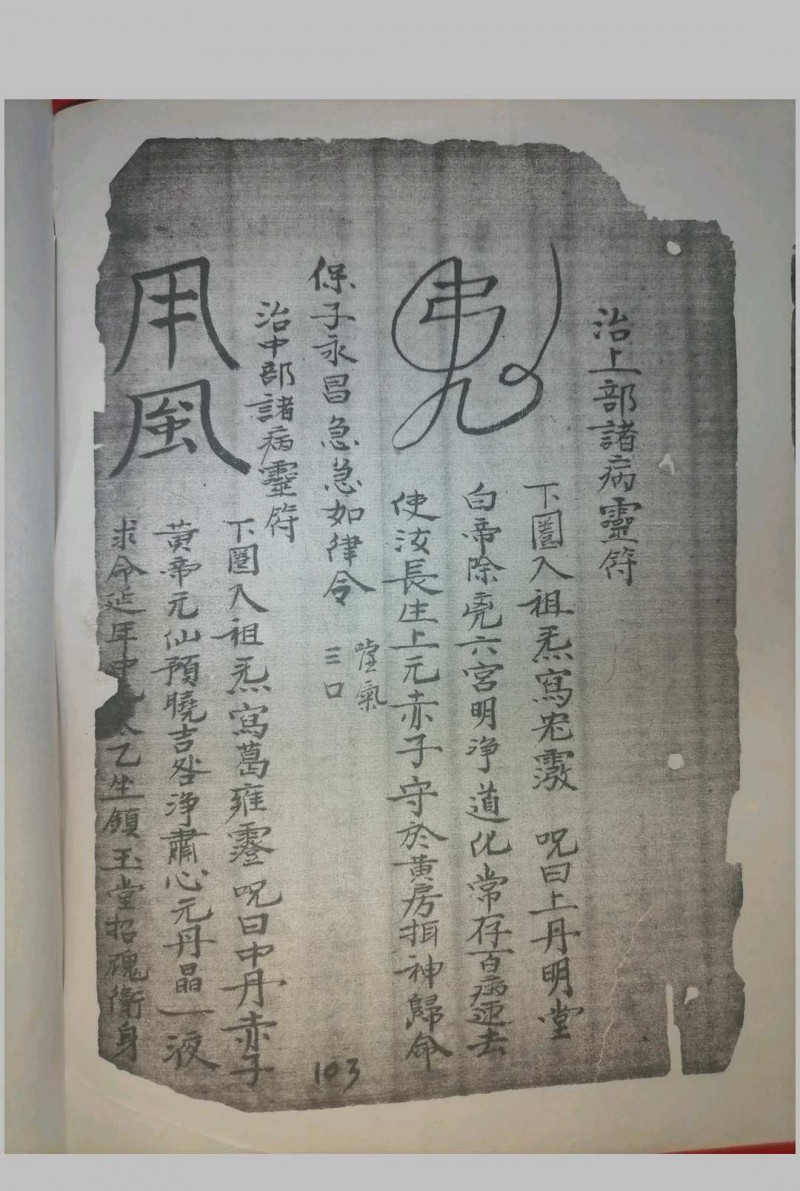 治上部諸病靈符
下圈入祖炁寫 呪曰上丹明堂
白帝除堯六宮明浄道化常存百病速去
使汝長生上元赤子守於黄房招神歸命
保子永昌急急如律令 噓氣三口
治中部諸病靈符
下圈入祖炁寫葛雍靈呪曰中丹赤子
黄帝元仙預曉吉咎浄肅心元丹晶一液
求命延年中 太乙坐鎮玉堂招魂衛身
103